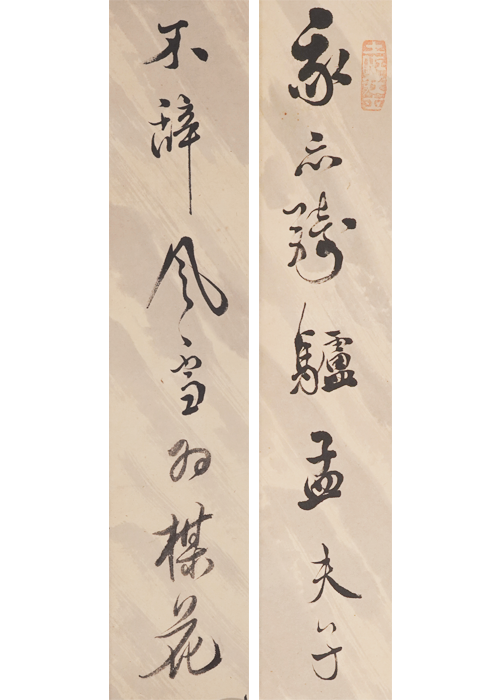 我亦騎驢孟夫子
不辭風雪為楳花